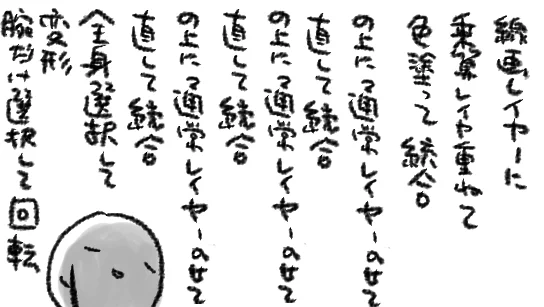 線画レイヤーに
乗算レイヤ重ねて
色塗って 統合
の上に 通常レイヤーのせて
直して 統合
の上に 通常レイヤーのせて
直して 統合
の上に 通常レイヤーのせて
直して 統合
全身選択して
変形
腕だけ選択して 回転